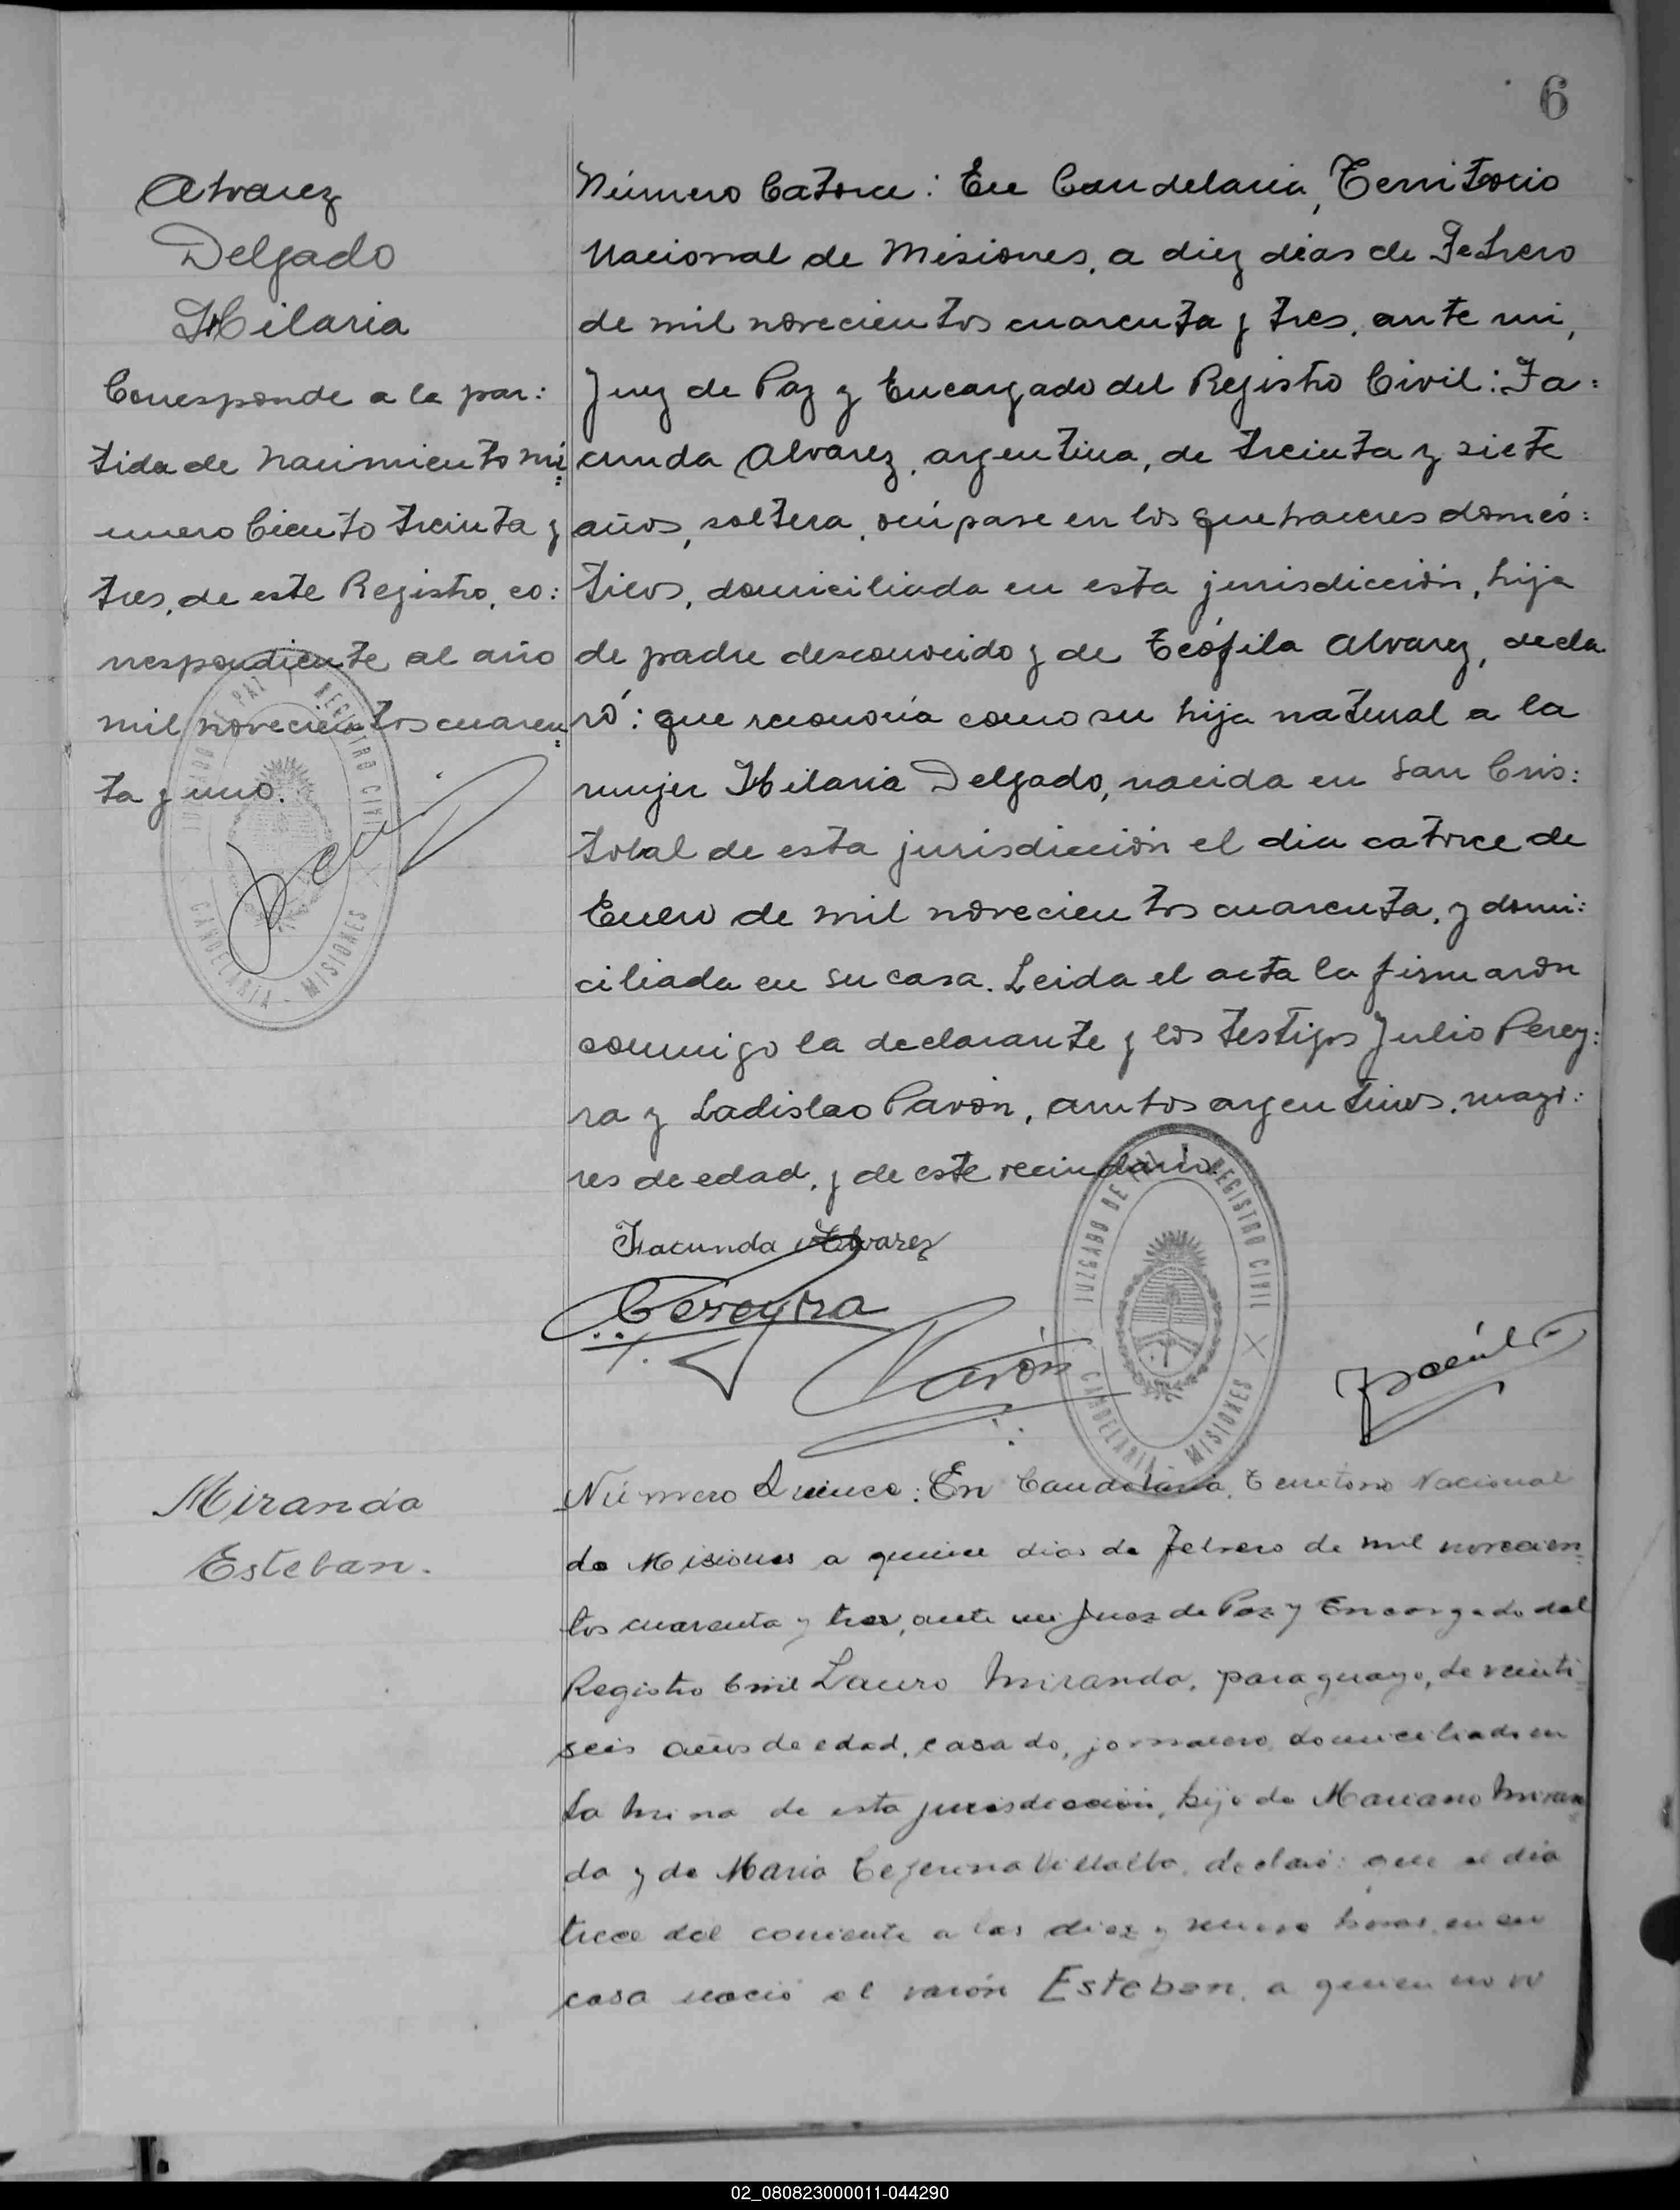 6
Alvarez
Delgado
Hilaria
Corresponde a la par:
tida de nacimiento nú
mero Ciento treinta y
tres, de este Registro, co:
rrespondiente al año
mil novecientos cuaren:
ta y uno.
JUZGADO DE PAZ Y REGISTRO CIVIL
CANDELARIA - MISIONES
Número Catorce: En Candelaria, Territorio
Nacional de Misiones, a diez dias de Febrero
de mil novecientos cuarenta y tres, ante mi,
Juez de Paz y Encargado del Registro Civil: Fa:
cunda Alvarez, argentina, de treinta y siete
años, soltera, ocúpase en los quehaceres domés:
ticos, domiciliada en esta jurisdicción, hija
de padre desconocido y de Teófila Alvarez, decla
ró: que reconocía como su hija natural a la
mujer Hilaria Delgado, nacida en San Cris:
tobal de esta jurisdicción el dia catorce de
Enero de mil novecientos cuarenta, y domi:
ciliada en su casa. Leida el acta la firmaron
conmigo la declarante y los testigos Julio Perey:
ra y Ladislao Pavón, ambos argentinos, mayo:
res de edad, y de este vecindario.
Facunda Alvarez
Pereyra
Pavón
JUZGADO DE PAZ Y REGISTRO CIVIL
CANDELARIA - MISIONES
Miranda
Esteban.
Número Quince: En Candelaria, Territorio Nacional
de Misiones a quince dias de febrero de mil novecien
tos cuarenta y tres, ante mi Juez de Paz y Encargado del
Registro Civil Lauro Miranda, paraguayo, de veinti
seis años de edad, casado, jornalero domiciliado en
La Mina de esta jurisdicción, hijo de Mariano Miran
da y de Maria Ceferina Villalba, declaró: que el dia
trece del corriente a las diez y nueve horas, en su
casa nació el varón Esteban, a quien no vo
02_080823000011-044290